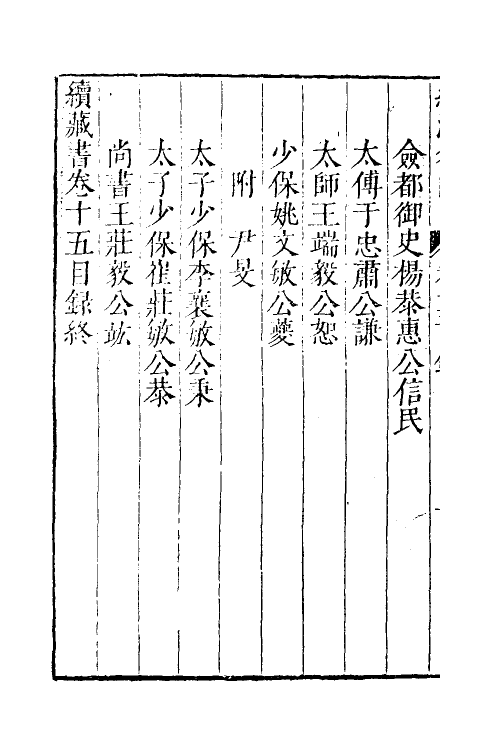 僉都御史楊恭惠公信民
太傅于忠肅公謙
太師王端毅公恕
少保姚文敏公夔
附尹旻
太子少保李襄敏公秉
太子少保崔莊敏公恭
尚書王莊毅公竑
續藏書卷十五目録終